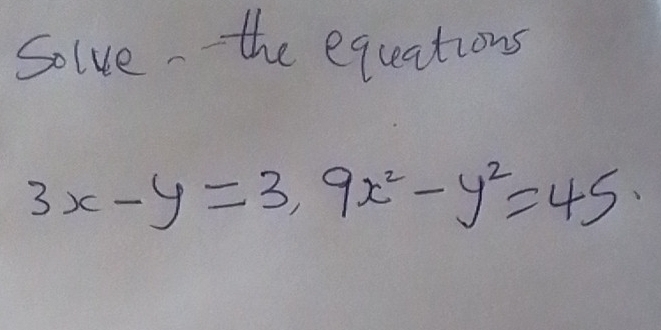 Solve the equations
3x - y = 3, 9x² - y² = 45.